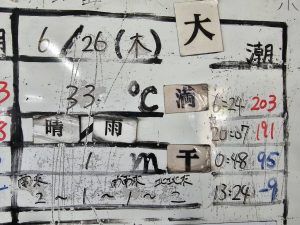 6/26(木) 大 潮
33 ℃ 満 6:24 203
晴/雨 20:07 191
1 m 干 0:48 95
南東 北北東 13:24 -9
2〜1〜1〜2